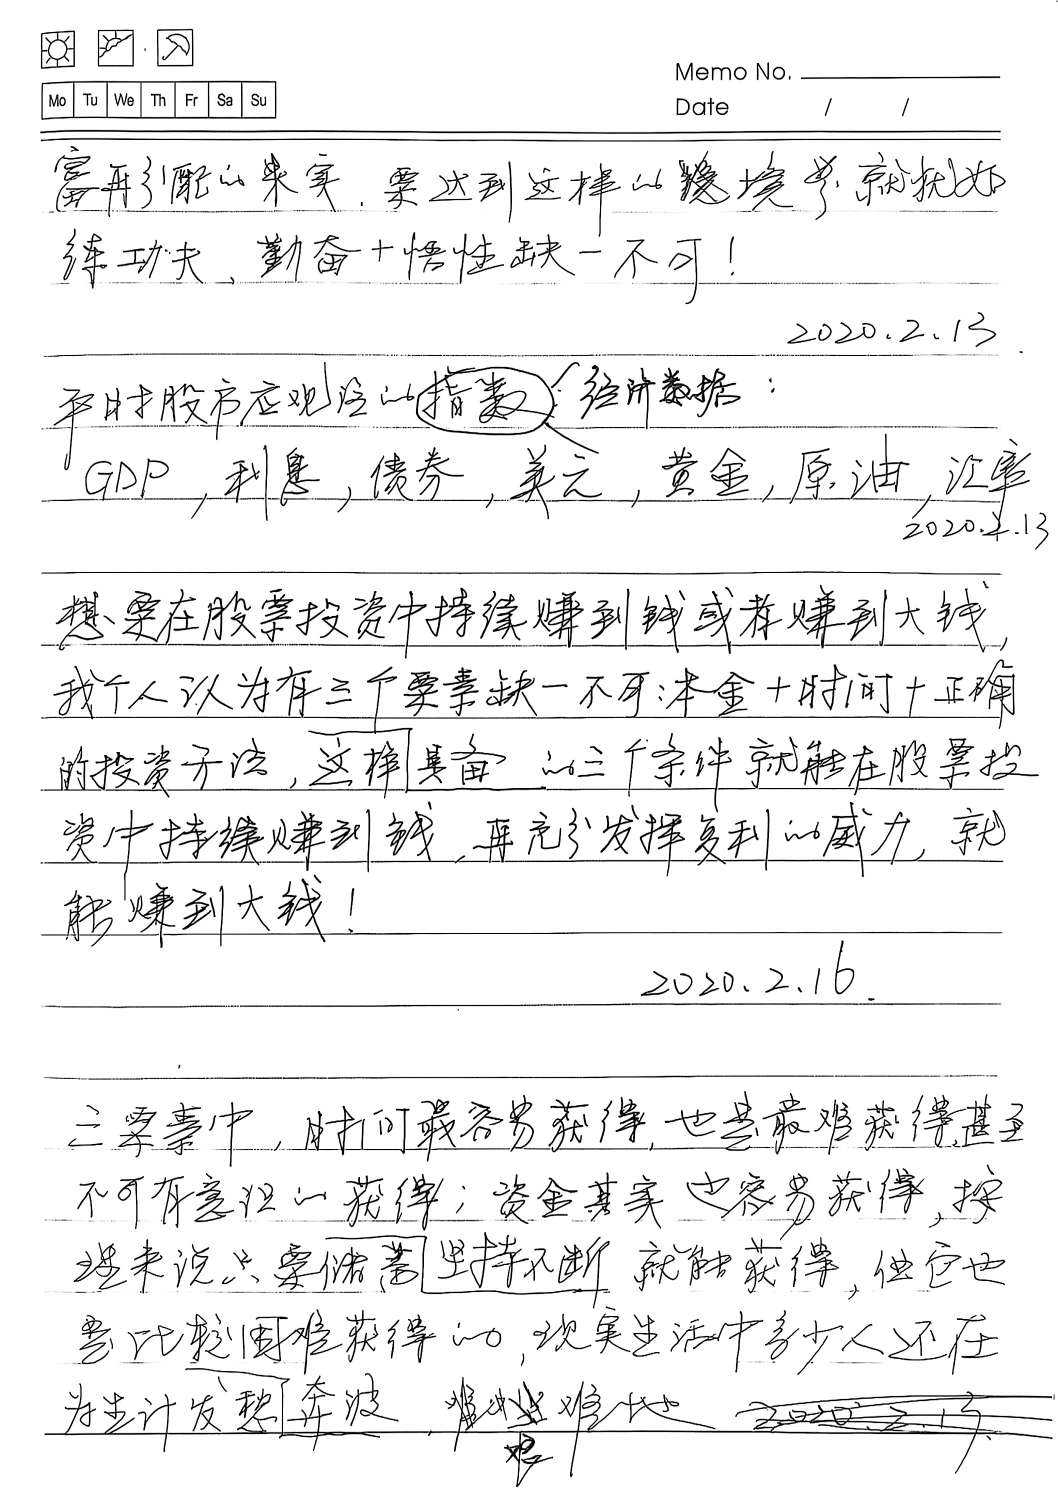 Memo No.
Mo Tu We Th Fr Sa Su
Date / /
富再分配的果实.要达到这样的境界就犹如
练功夫、勤奋+悟性缺一不可!
2020.2.13
平时股市应观注的指数:经济数据:
GDP,利息,债券,美元,黄金,原油,汇率
2020.2.13
想要在股票投资中持续赚到钱或者赚到大钱,
我个人认为有三个要素缺一不可:本金+时间+正确
的投资方法,这样具备的三个条件就能在股票投
资中持续赚到钱,再充分发挥复利的威力,就
能赚到大钱!
2020.2.16
三要素中,时间最容易获得,也是最难获得,甚至
不可有意识的获得;资金其实也容易获得,按
理来说只要储蓄坚持不断就能获得,但它也
是比较困难获得的,现实生活中多少人还在
为生计发愁奔波,难难地
2020.2.13.
艰